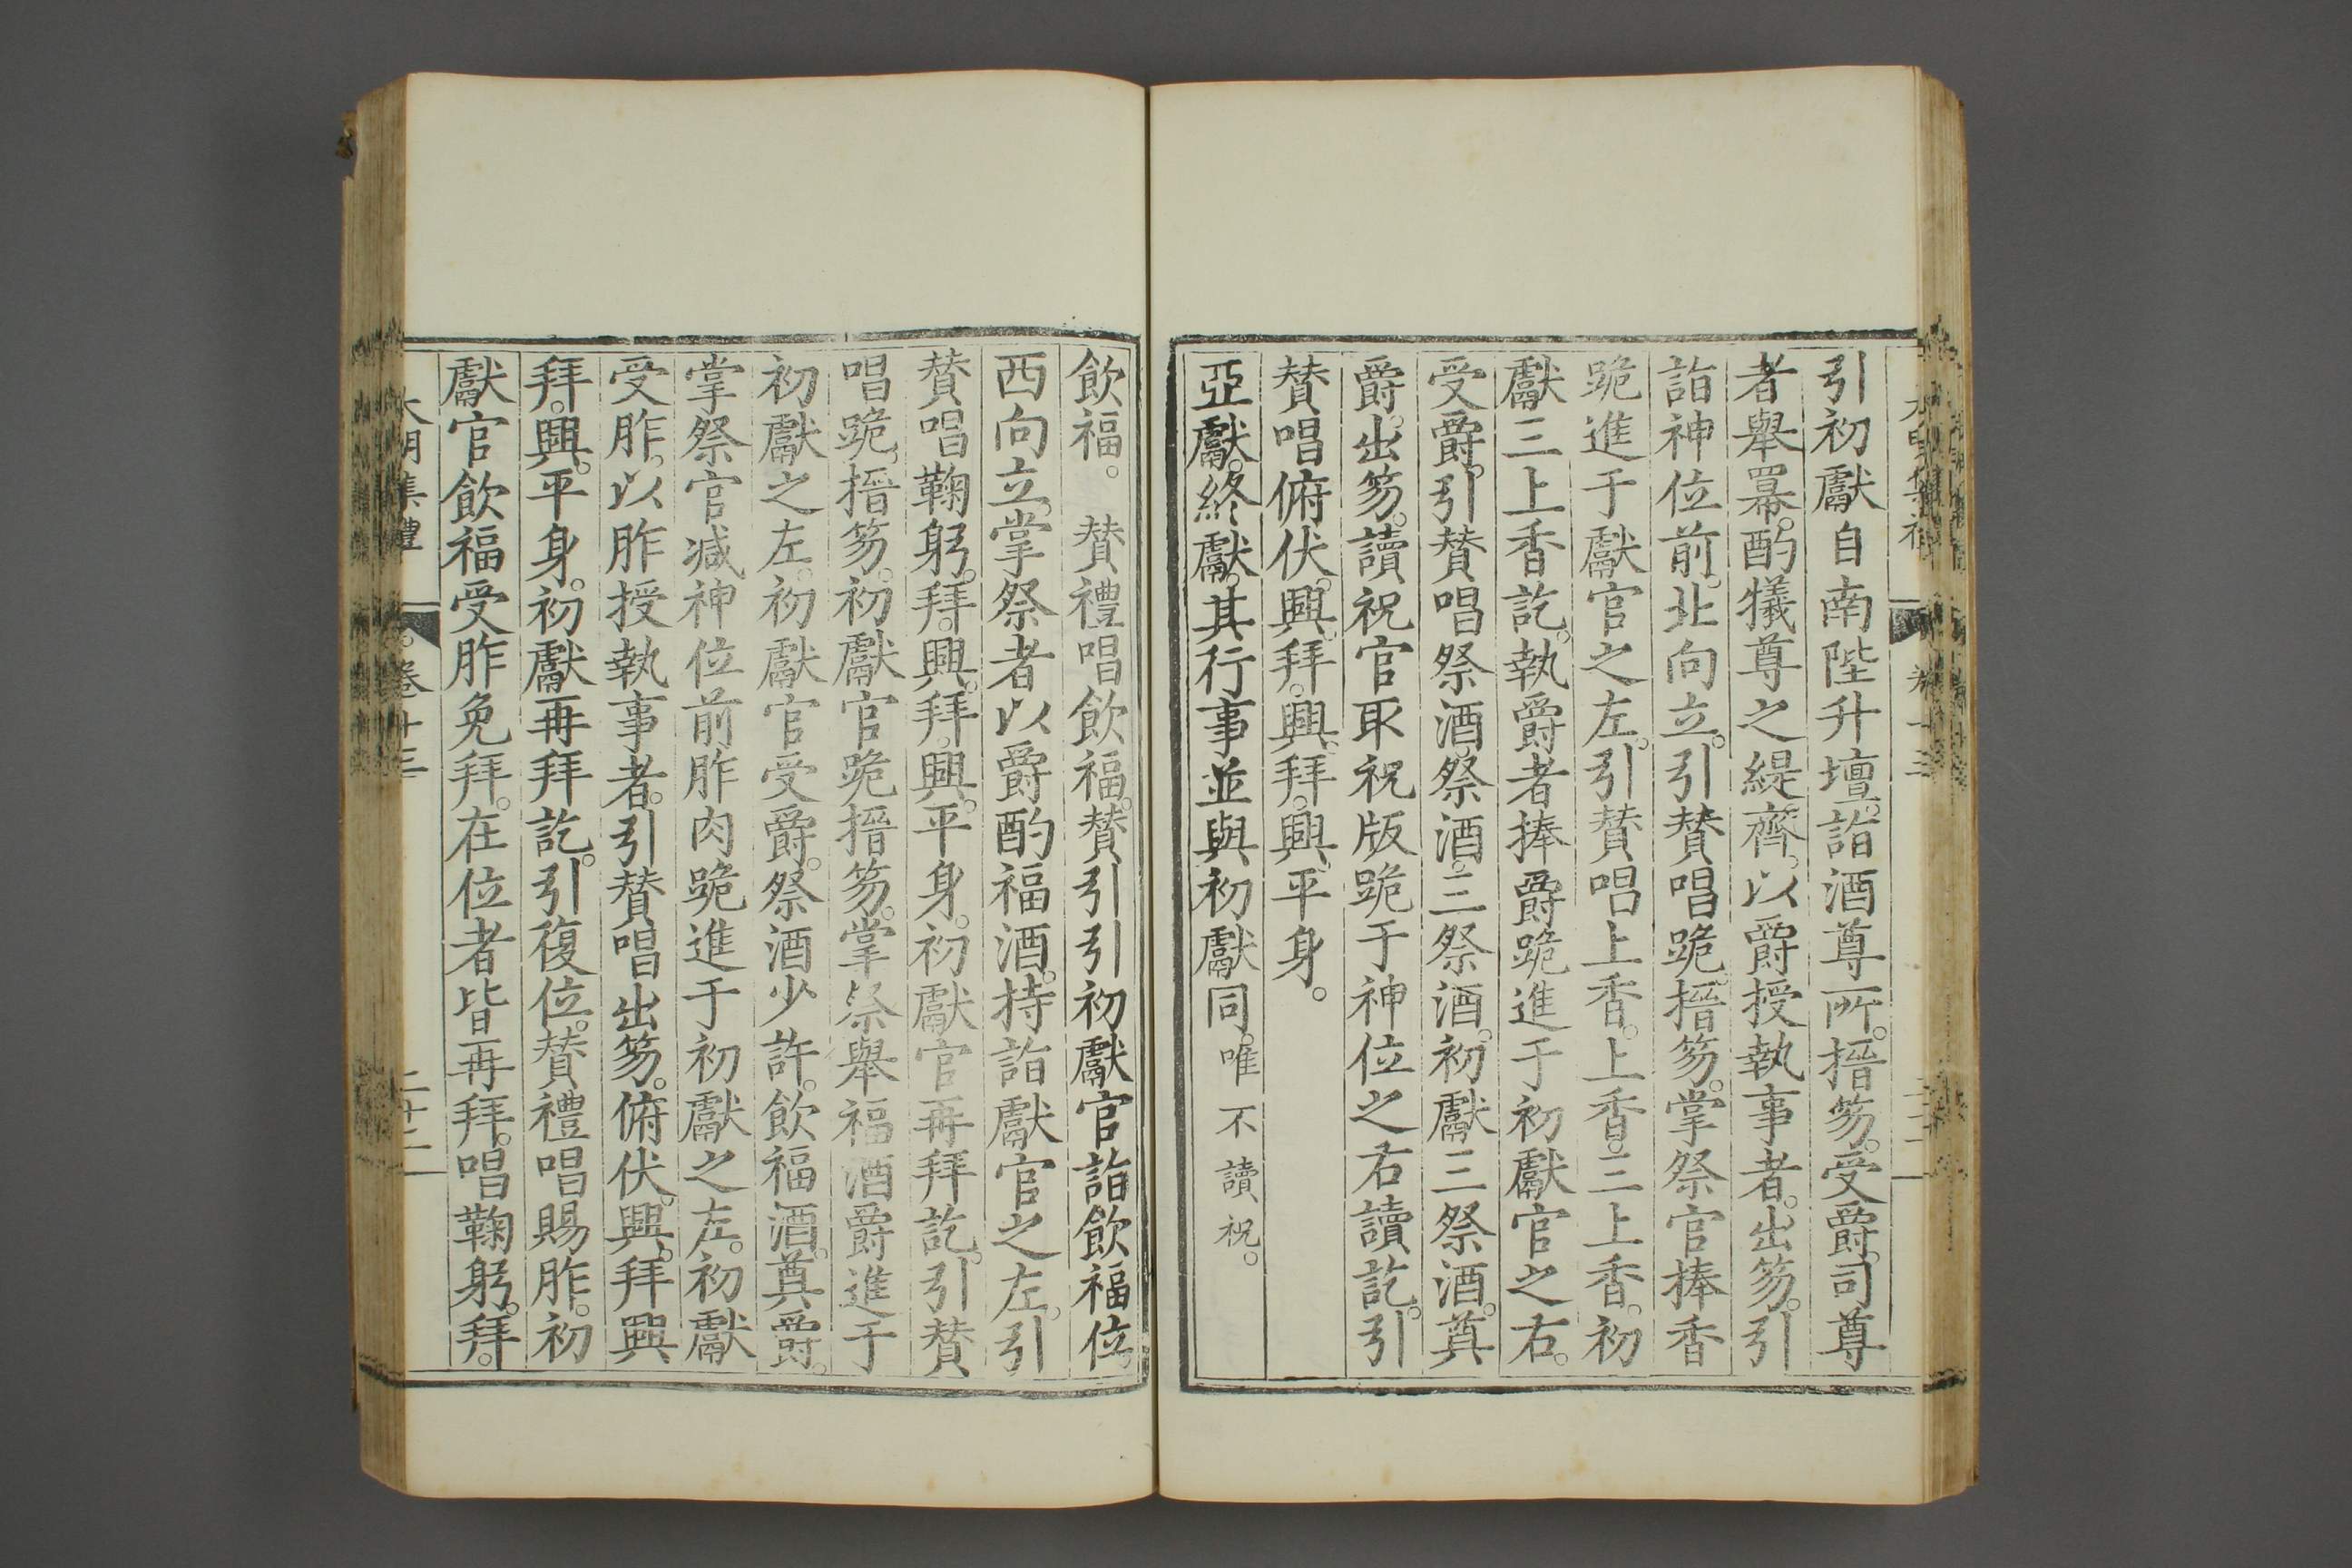 引初獻自南陛升壇。詣酒尊所。搢笏。受爵。司尊
者舉冪。酌犧尊之緹齊。以爵授執事者。出笏。引
詣神位前。北向立。引賛唱跪。搢笏。掌祭官捧香
跪進于獻官之左。引賛唱上香。上香。三上香。初
獻三上香訖。執爵者捧爵跪進于初獻官之右。
受爵。引賛唱祭酒。祭酒。三祭酒。初獻三祭酒。奠
爵。出笏。讀祝官取祝版跪于神位之右讀訖。引
賛唱俯伏。興。拜。興。拜。興。平身。
亞獻。終獻。其行事並與初獻同。唯不讀祝。
飲福。賛禮唱飲福。賛引引初獻官詣飲福位。
西向立。掌祭者以爵酌福酒。持詣獻官之左。引
賛唱鞠躬。拜。興。拜。興。平身。初獻官再拜訖。引賛
唱跪。搢笏。初獻官跪搢笏。掌祭舉福酒爵進于
初獻之左。初獻官受爵。祭酒少許。飲福酒。奠爵。
掌祭官减神位前胙肉跪進于初獻之左。初獻
受胙。以胙授執事者。引賛唱出笏。俯伏。興。拜興
拜。興。平身。初獻再拜訖。引復位。賛禮唱賜胙。初
獻官飲福受胙免拜。在位者皆再拜。唱鞠躬。拜。
大明集禮 卷十三 二十二